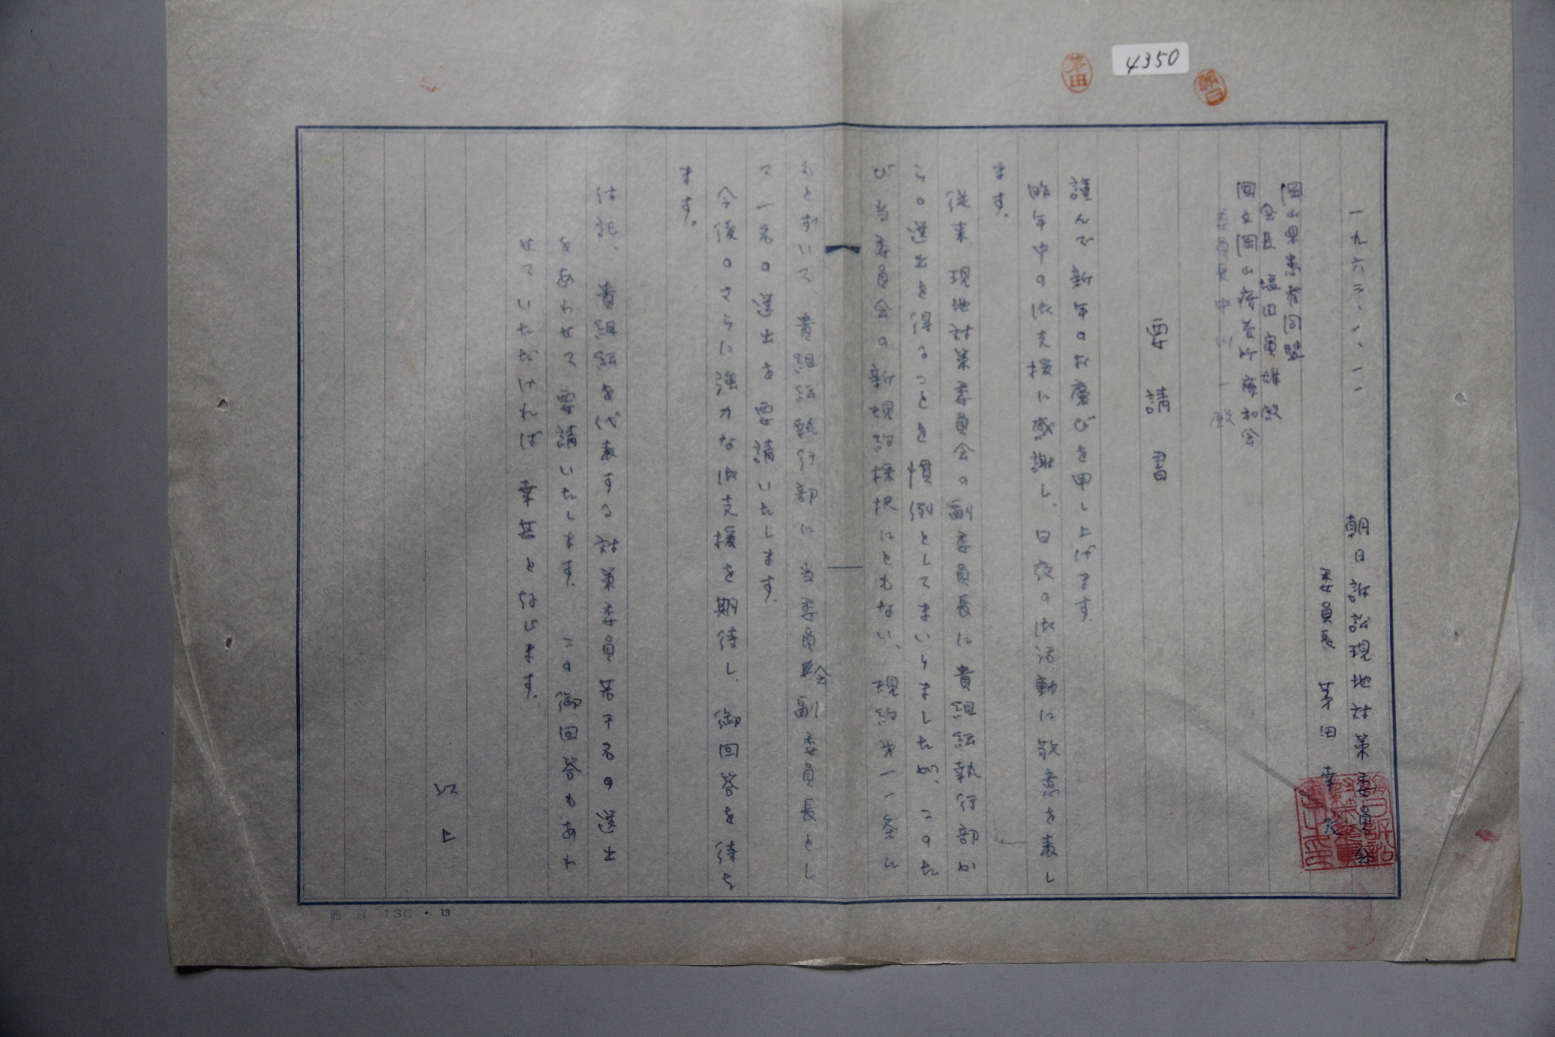 4350
一九六三、一、一一
朝日訴訟現地対策委員会
委員長
岡山県患者同盟
殿
国立岡山療養所療和会
殿
要請書
謹んで新年のお慶びを申し上げます。
昨年中の御支援に感謝し、日夜の御活動に敬意を表し
ます。
従来、現地対策委員会の副委員長に貴組織執行部か
らの送出を得ることを慣例としてまいりましたが、このた
び当委員会の新規約採択にともない、規約第一一条に
もとずいて、貴組織執行部に当委員会副委員長とし
て一名の送出を要請いたします。
今後のさらに強力な御支援を期待し、御回答を待ち
ます。
付記、貴組織を代表する対策委員若干名の送出
をあわせて要請いたします。この御回答もあわ
せていただければ幸甚と存じます。
以上